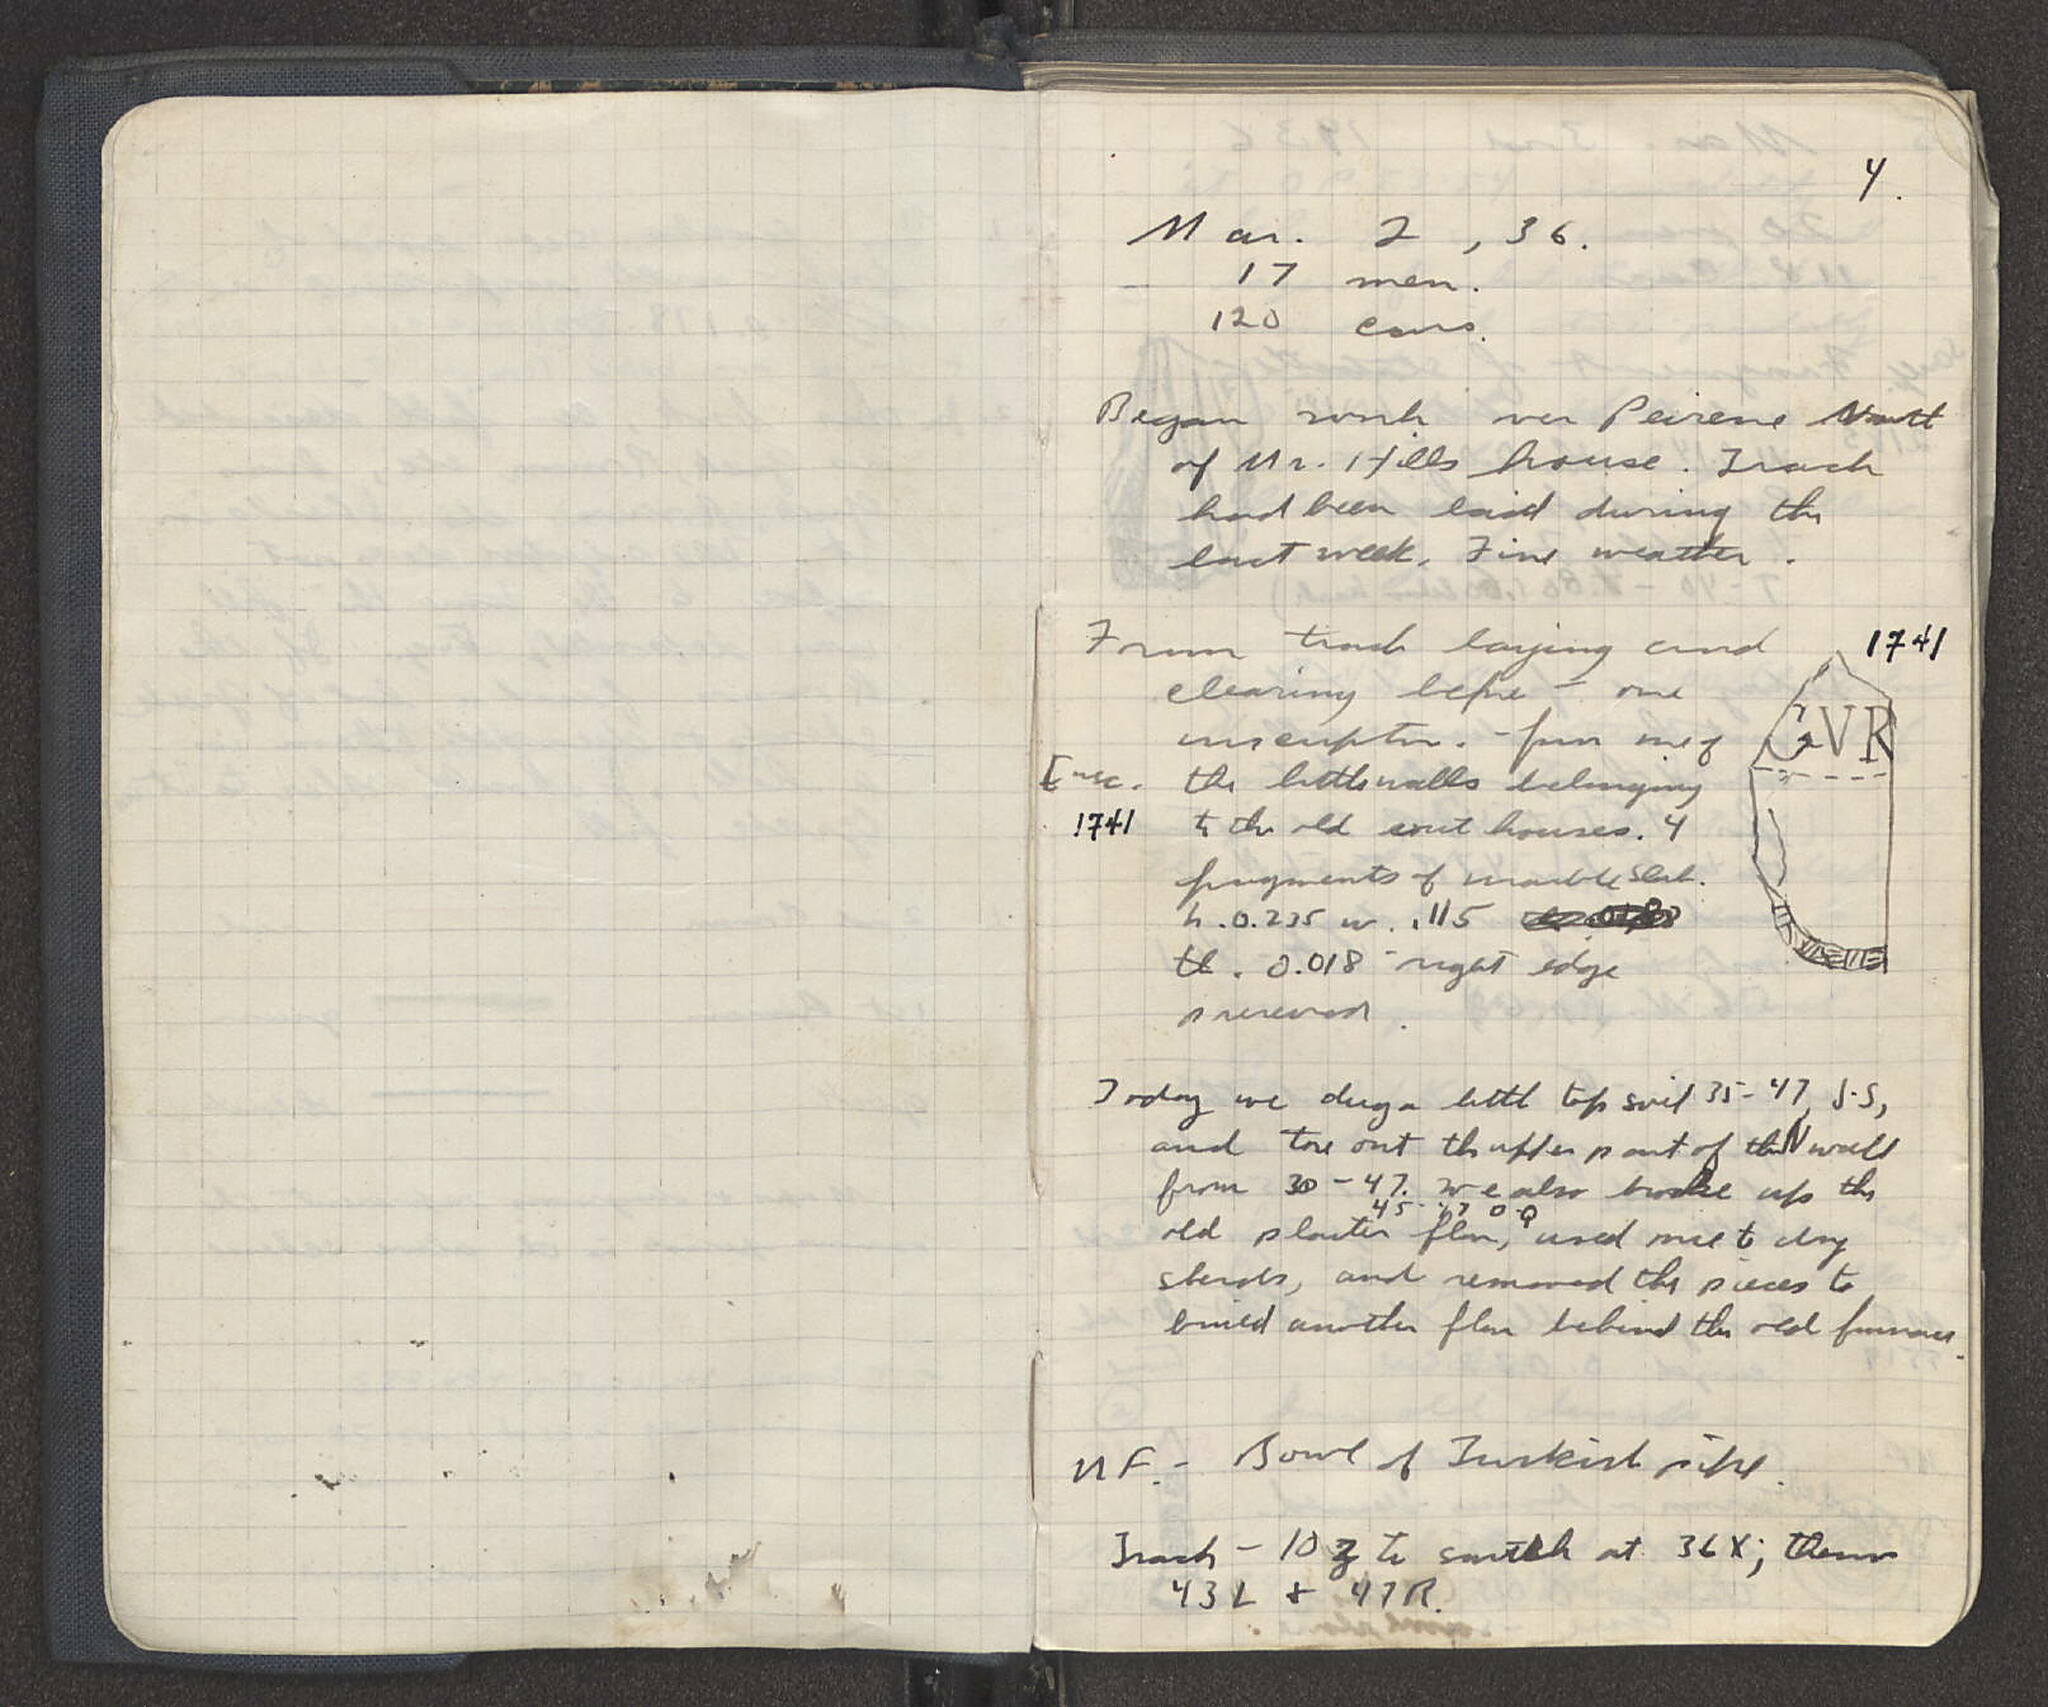 4.
Mar. 2, 36.
17 men.
120 cars.
Began work over Peirene North
of Mr. Hills house. Track
had been laid during the
last week. Fine weather.
From track laying and
clearing before - one
inscription. - from one of
the little walls belonging
to the old out houses. 4
fragments of marble slab.
h. 0.235 w. .115
th. 0.018 - right edge
preserved.
Insc.
1741
1741
GVR
Today we dug a little top soil 35-47, J-S,
and tore out the upper part of the N wall
from 30-47. We also broke up the
45-47 O-Q
old plaster floor, used once to dry
sherds, and removed the pieces to
build another floor behind the old furnaces.
NF. - Bowl of Turkish pipe.
Track - 10 Z to switch at 36X; thence
43L + 47R.